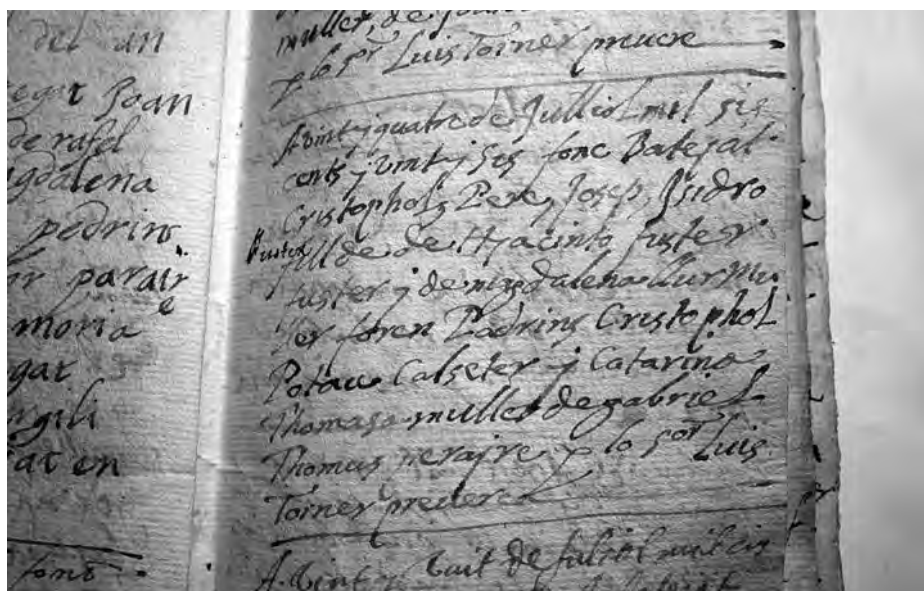 del un
Joan
de rafel
gdalena
padrins
parair
moria
gar
rgili
at en
font
muller, de
p lo sor Luis Torner preuere
A vint y quatre de Julliol mil sis
cents y vint y sis fonc Batejat
Cristophol, Pere, Josep, Isidro
Fuster
fill de de Hyacinto fuster
fuster y de magdalena llur mu
ler foren Padrins Cristophol
Potau Calseter y Catarina
Thomasa muller de gabriel
Thomas peraire p lo sor Luis
Torner preuere
A vint y vuit de Juliol mil sis